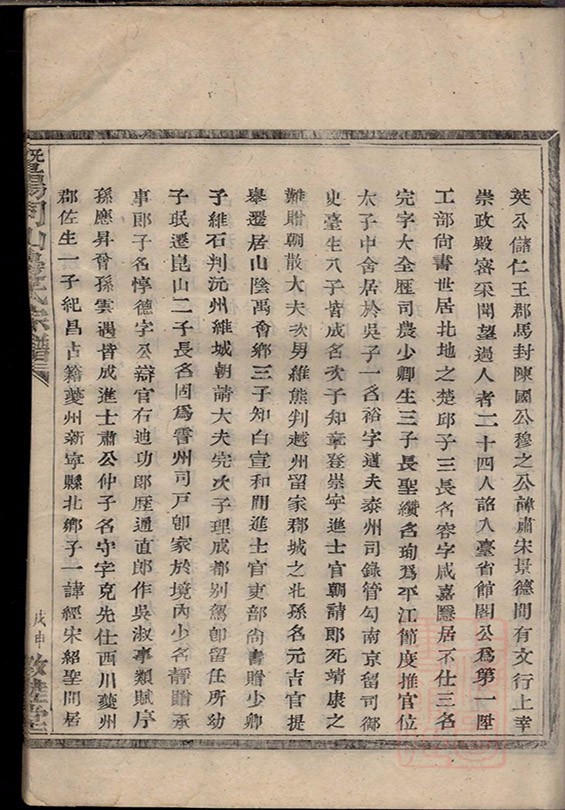 英公儲仁王郡馬封陳國公穆之公諱肅宋景德間有文行上幸
崇政殿審采聞望過人者二十四人詔入臺省館閣公爲第一陞
工部尚書世居北地之楚邱子三長名容字咸嘉隱居不仕三名
完字大全歷司農少卿生三子長聖纘名珣爲平江節度推官位
太子中舍居於吳子一名裕字道夫泰州司錄管勾南京留司御
史臺生八子皆成名次子知章登崇寧進士官朝請郎死靖康之
難贈朝散大夫次男維熊判越州留家郡城之北孫名元吉官提
舉遷居山陰禹會鄉三子知白宣和間進士官吏部尚書贈少卿
子維石判沅州維城朝請大夫完次子理成都別駕卽留任所幼
子珉遷崑山二子長名固爲雷州司戶卽家於境內少名靜贈承
事郎子名惇德字公辯官右迪功郎歷通直郎作吳淑事類賦序
孫應昇曾孫雲遇皆成進士肅公仲子名守字克先仕西川夔州
郡佐生一子紀昌占籍夔州新寧縣北鄉子一諱經宋紹聖間居
暨陽同山邊氏宗譜
戊申